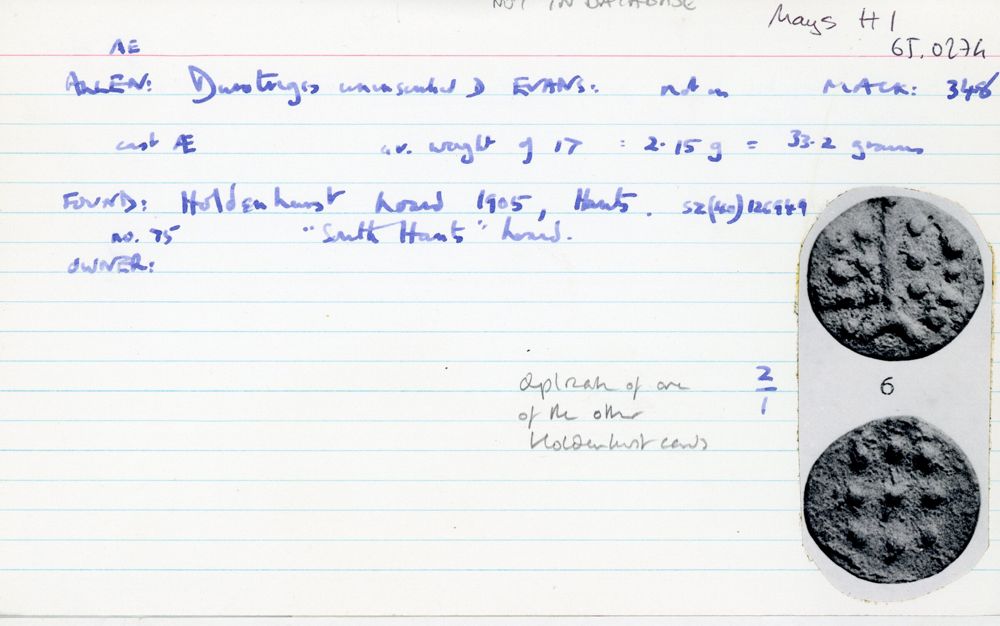 NOT IN DATABASE
Mays H1
65.0274
AE
ALLEN: Durotriges uninscribed D EVANS: not in MACK: 348
cast Æ av. weight of 17 = 2.15 g = 33.2 grains
FOUND: Holdenhurst hoard 1905, Hants. SZ(40)126949
no. 75 "South Hants" hoard.
OWNER:
duplicate of one
of the other
Holdenhurst cards
2
1
6